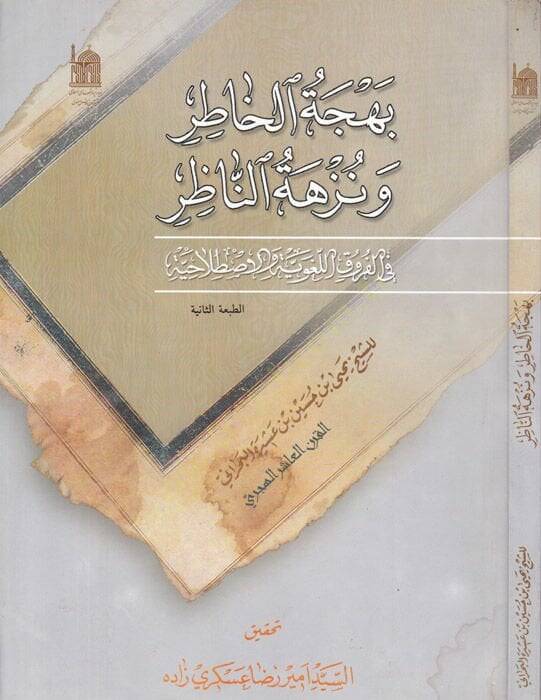 بَهْجَةُ ٱلخاطِرِ
وَ نُزْهَةُ ٱلنّاظِرِ
في الفُروُقِ اللُّغَوِيَّةِ وَالاِصْطِلاحِيَّةِ
الطبعة الثانية
للشيخ يحيى ابن حسين بن عشيرة البحراني
القرن العاشر الهجري
تحقيق
السيد امير رضا عسكري زاده
بَهْجَةُ ٱلخاطِرِ وَ نُزْهَةُ ٱلنّاظِرِ
للشيخ يحيى ابن حسين بن عشيرة البحراني